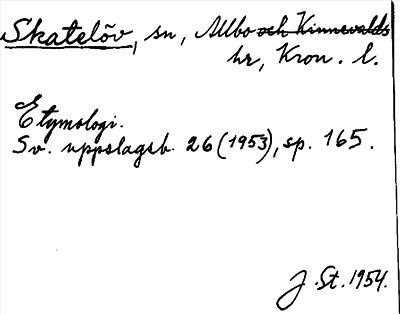 Skatelöv, sn, Allbo och Kinnevalds
hr, Kron. l.
Etymologi.
Sv. uppslagsb. 26 (1953), sp. 165.
J. St. 1954.